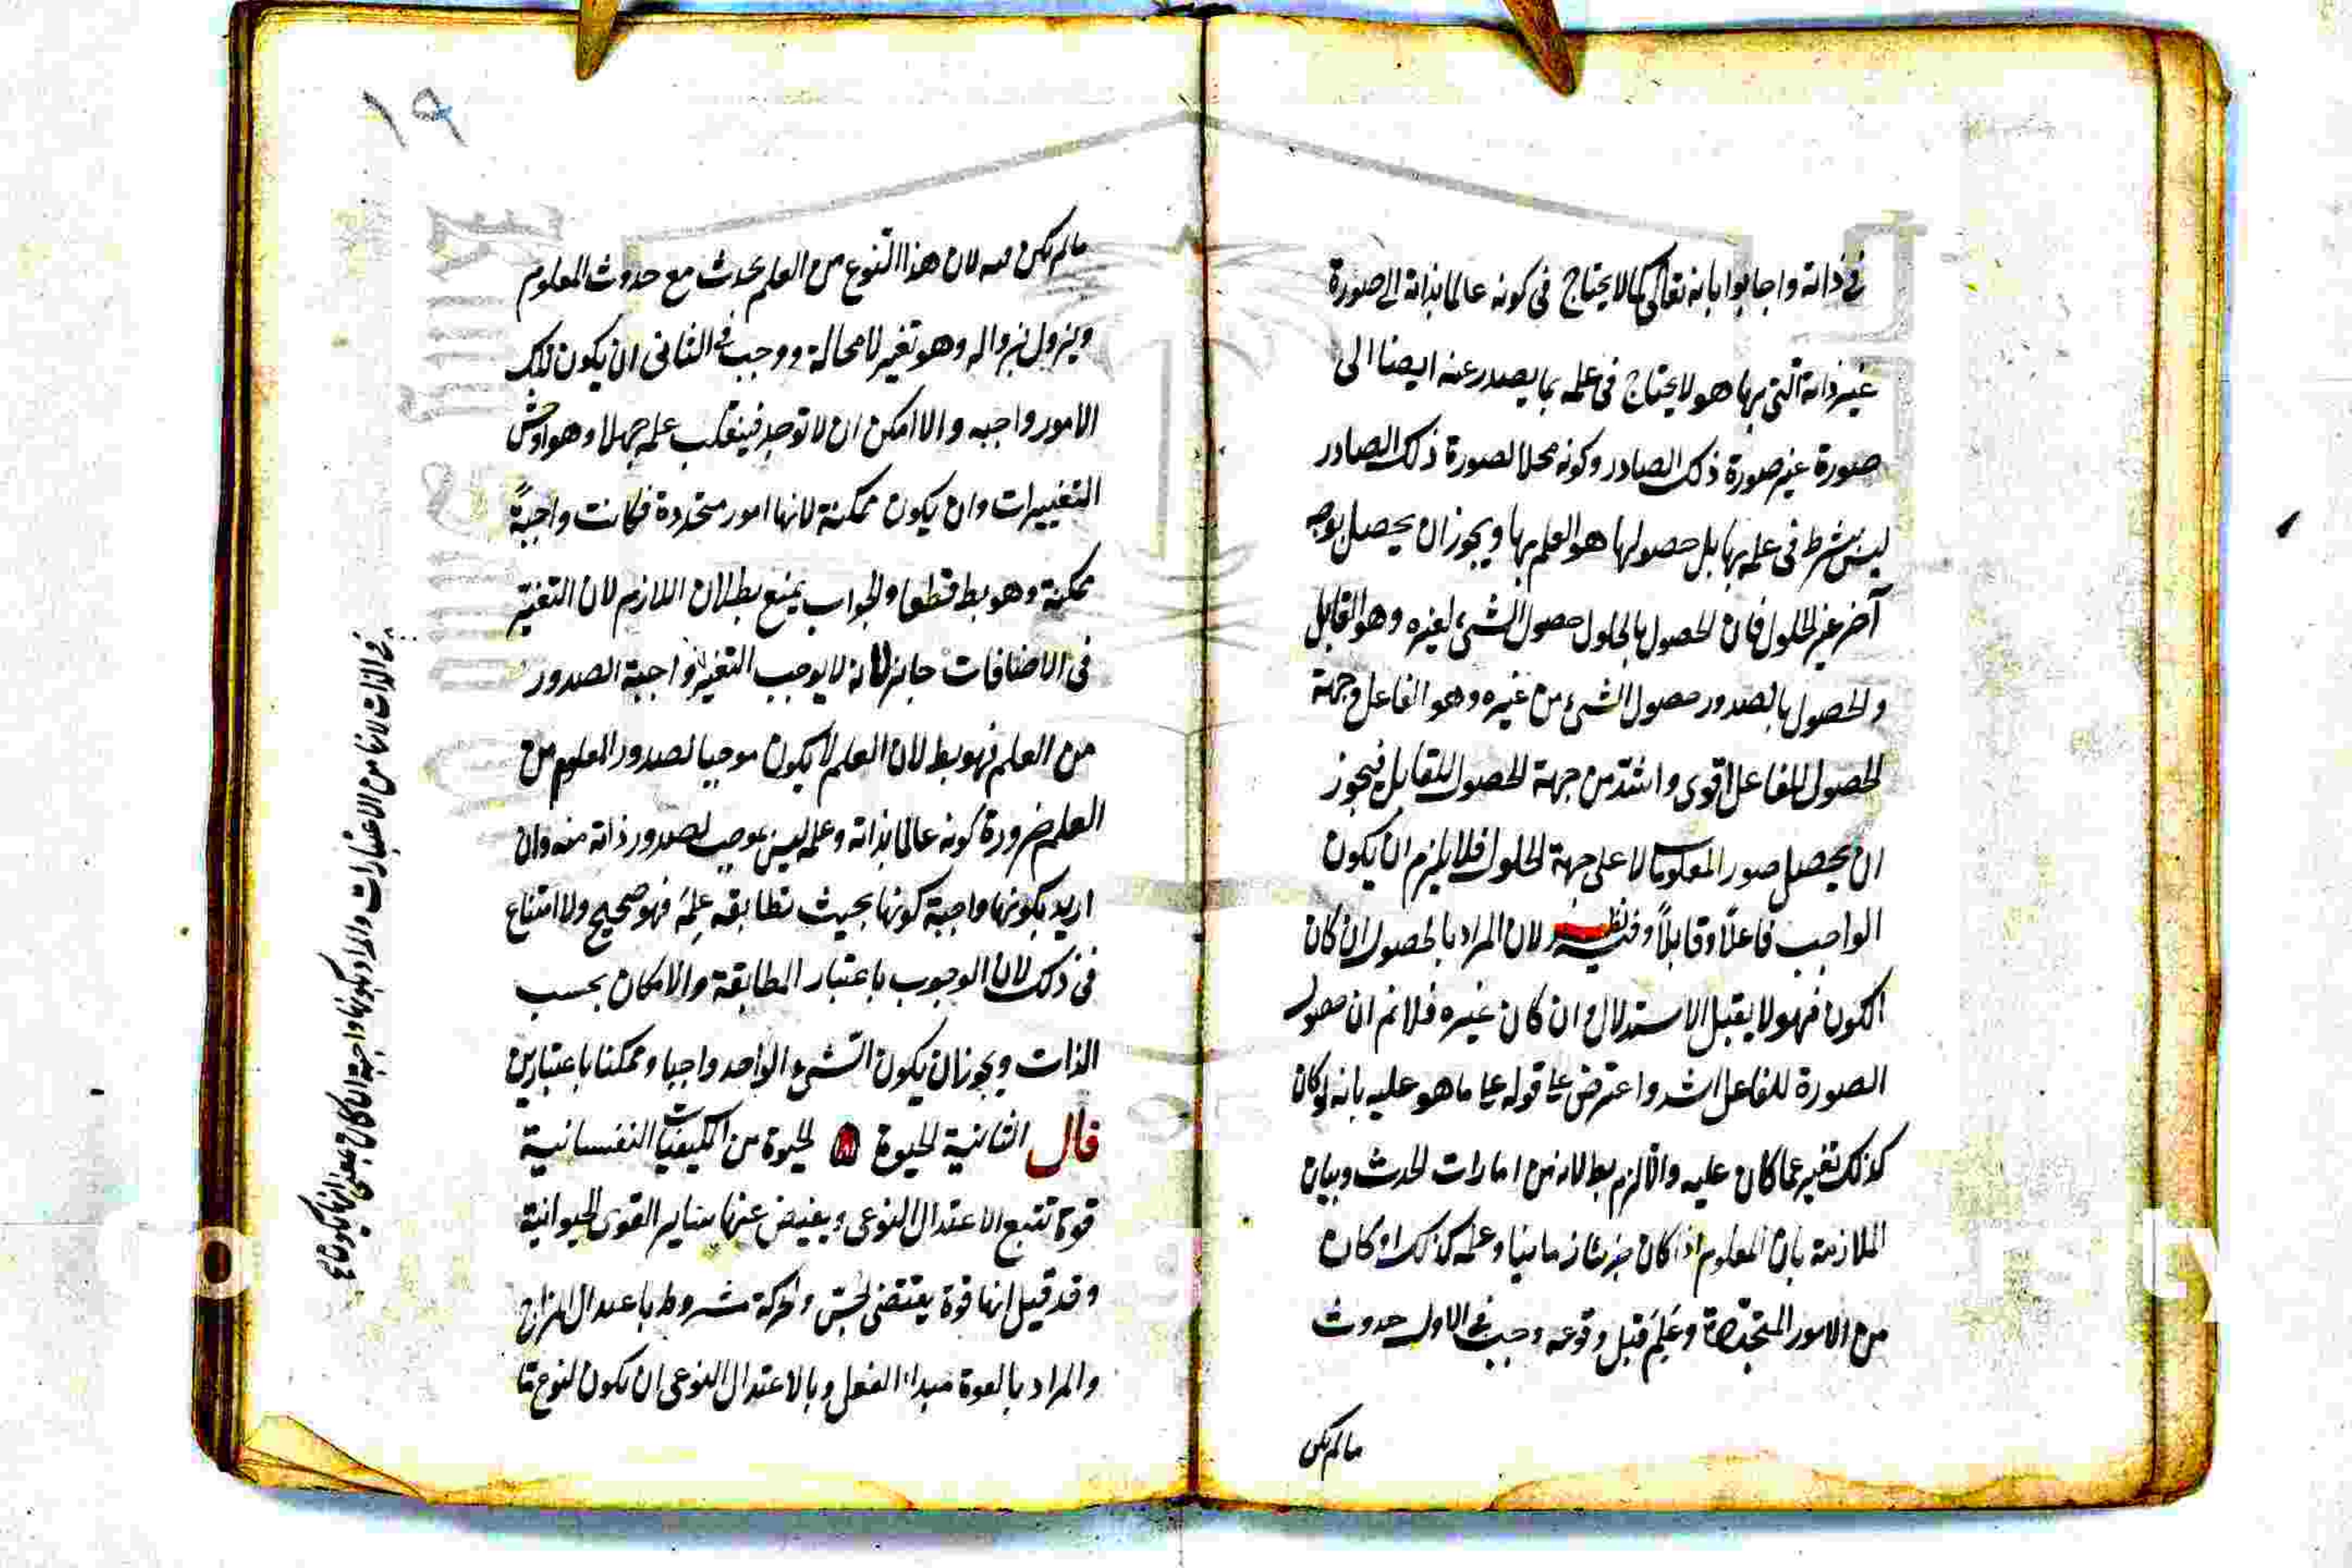 في ذاته واجابوا بانه تعالى كما لا يحتاج في كونه عالما بذاته الى صورة
غير ذاته التي بها هو لا يحتاج في علمه بما يصدر عنه ايضا الى
صورة غير صورة ذلك الصادر وكونه محلا لصورة ذلك الصادر
ليس بشرط في علمه بها بل حصولها هو العلم بها ويجوز ان يحصل بوجه
آخر غير الحلول فان الحصول بالحلول حصول الشيء لغيره وهو القابل
والحصول بالصدور حصول الشيء من غيره وهو الفاعل وجهة
الحصول للفاعل اقوى واشد من جهة الحصول للقابل فيجوز
ان يحصل صور المعلومات لا على جهة الحلول فلا يلزم ان يكون
الواجب فاعلاً وقابلاً وفيه نظر لان المراد بالحصول ان كان
الكون فهو لا يقبل الاستدلال وان كان غيره فلانم ان حصول
الصورة للفاعل اشد واعترض على قوله على ما هو عليه بانه لو كان
كذلك تغير عما كان عليه واللازم بط لانه من امارات الحدث وبيان
الملازمة بان المعلوم اذا كان جزئيا زمانيا وعلمه كذلك او كان
من الامور المتجددة وعَلِمَ قبل وقوعه وجب في الاول حدوث
مالم يكن
١٩
مالم يكن فيه لان هذا النوع من العلم يحدث مع حدوث المعلوم
ويزول بزواله وهو تغير لا محالة ووجب في الثاني ان يكون تلك
الامور واجبه والا امكن ان لا توجد فينقلب علمه جهلا وهو اوحش
التغييرات وان يكون ممكنة لانها امور متجددة فكانت واجبةً
ممكنة وهو بط قطعا والجواب يمنع بطلان اللازم لان التغير
في الاضافات جايز لانه لا يوجب التغير واجبة الصدور
من العلم فهو بط لان العلم لا يكون موجبا لصدور المعلوم من
العلم ضرورة كونه عالما بذاته وعلمه ليس بموجب لصدور ذاته منه وان
اريد بكونها واجبة كونها بحيث تطابقه علمه فهو صحيح ولا امتناع
في ذلك لان الوجوب باعتبار المطابقة والامكان بحسب
الذات ويجوز ان يكون الشيء الواحد واجبا وممكنا باعتبارين
قال الثانية الحيوة الحيوة من الكيفيات النفسانية
قوة تتبع الاعتدال النوعي ويفيض عنها ساير القوى الحيوانية
وقد قيل انها قوة يقتضي الحس والحركة مشروط باعتدال المزاج
والمراد بالقوة مبداء الفعل وبالاعتدال النوعي ان يكون لنوع ما
في الذات لانها من الاعتبارات والمراد بكونها واجبة ان كان بمعنى انها يكون